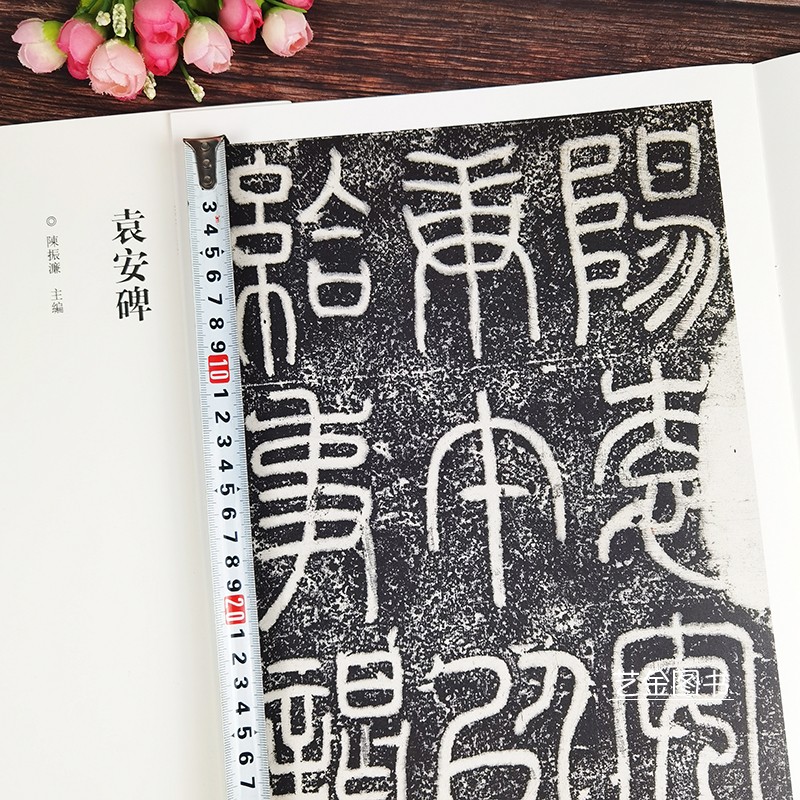 陽袁安
庚午以
給事謁
袁安碑
◎ 陳振濂 主編
3 4 5 6 7 8 9 10 1 2 3 4 5 6 7 8 9 20 1 2 3 4 5 6 7
艺金图书